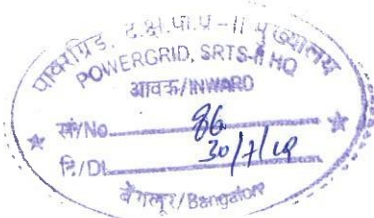 पावरग्रिड, द.क्षे.पा.प्र-II मुख्यालय
POWERGRID, SRTS-II HQ
आवक/INWARD
सं/No. 86
दि/Dt. 30/7/19
बेंगलूर/Bangalore